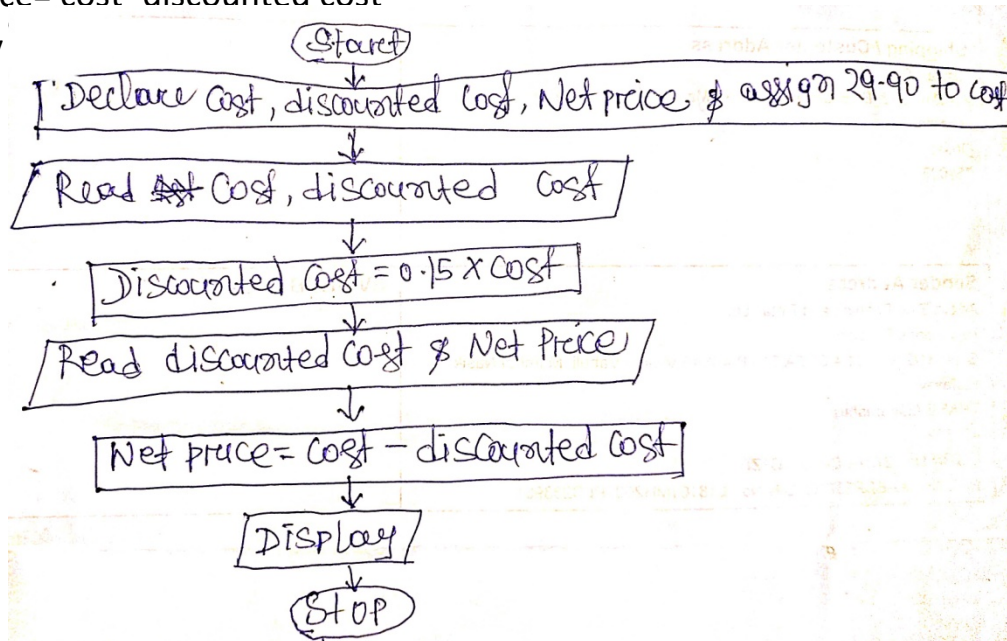 ce= cost- discounted cost
Start
Declare Cost, discounted Cost, Net price & assign 29.90 to cost
Read Cost, discounted Cost
Discounted Cost = 0.15 X Cost
Read discounted Cost & Net Price
Net price = Cost - discounted Cost
DISPlay
StOP